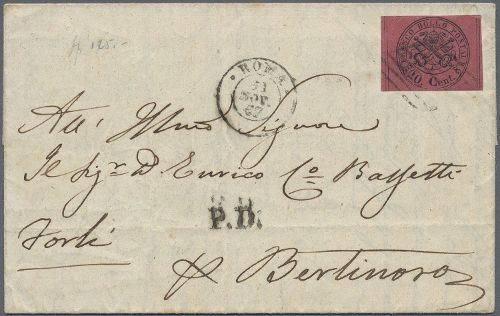 fr 125.-
FRANCO BOLLO POSTALE
20 Cent.
ROMA
67
All' Illmo Signore
Il Sigr D Enrico Co Bassetti
P.D.
Forlì
Bertinoro